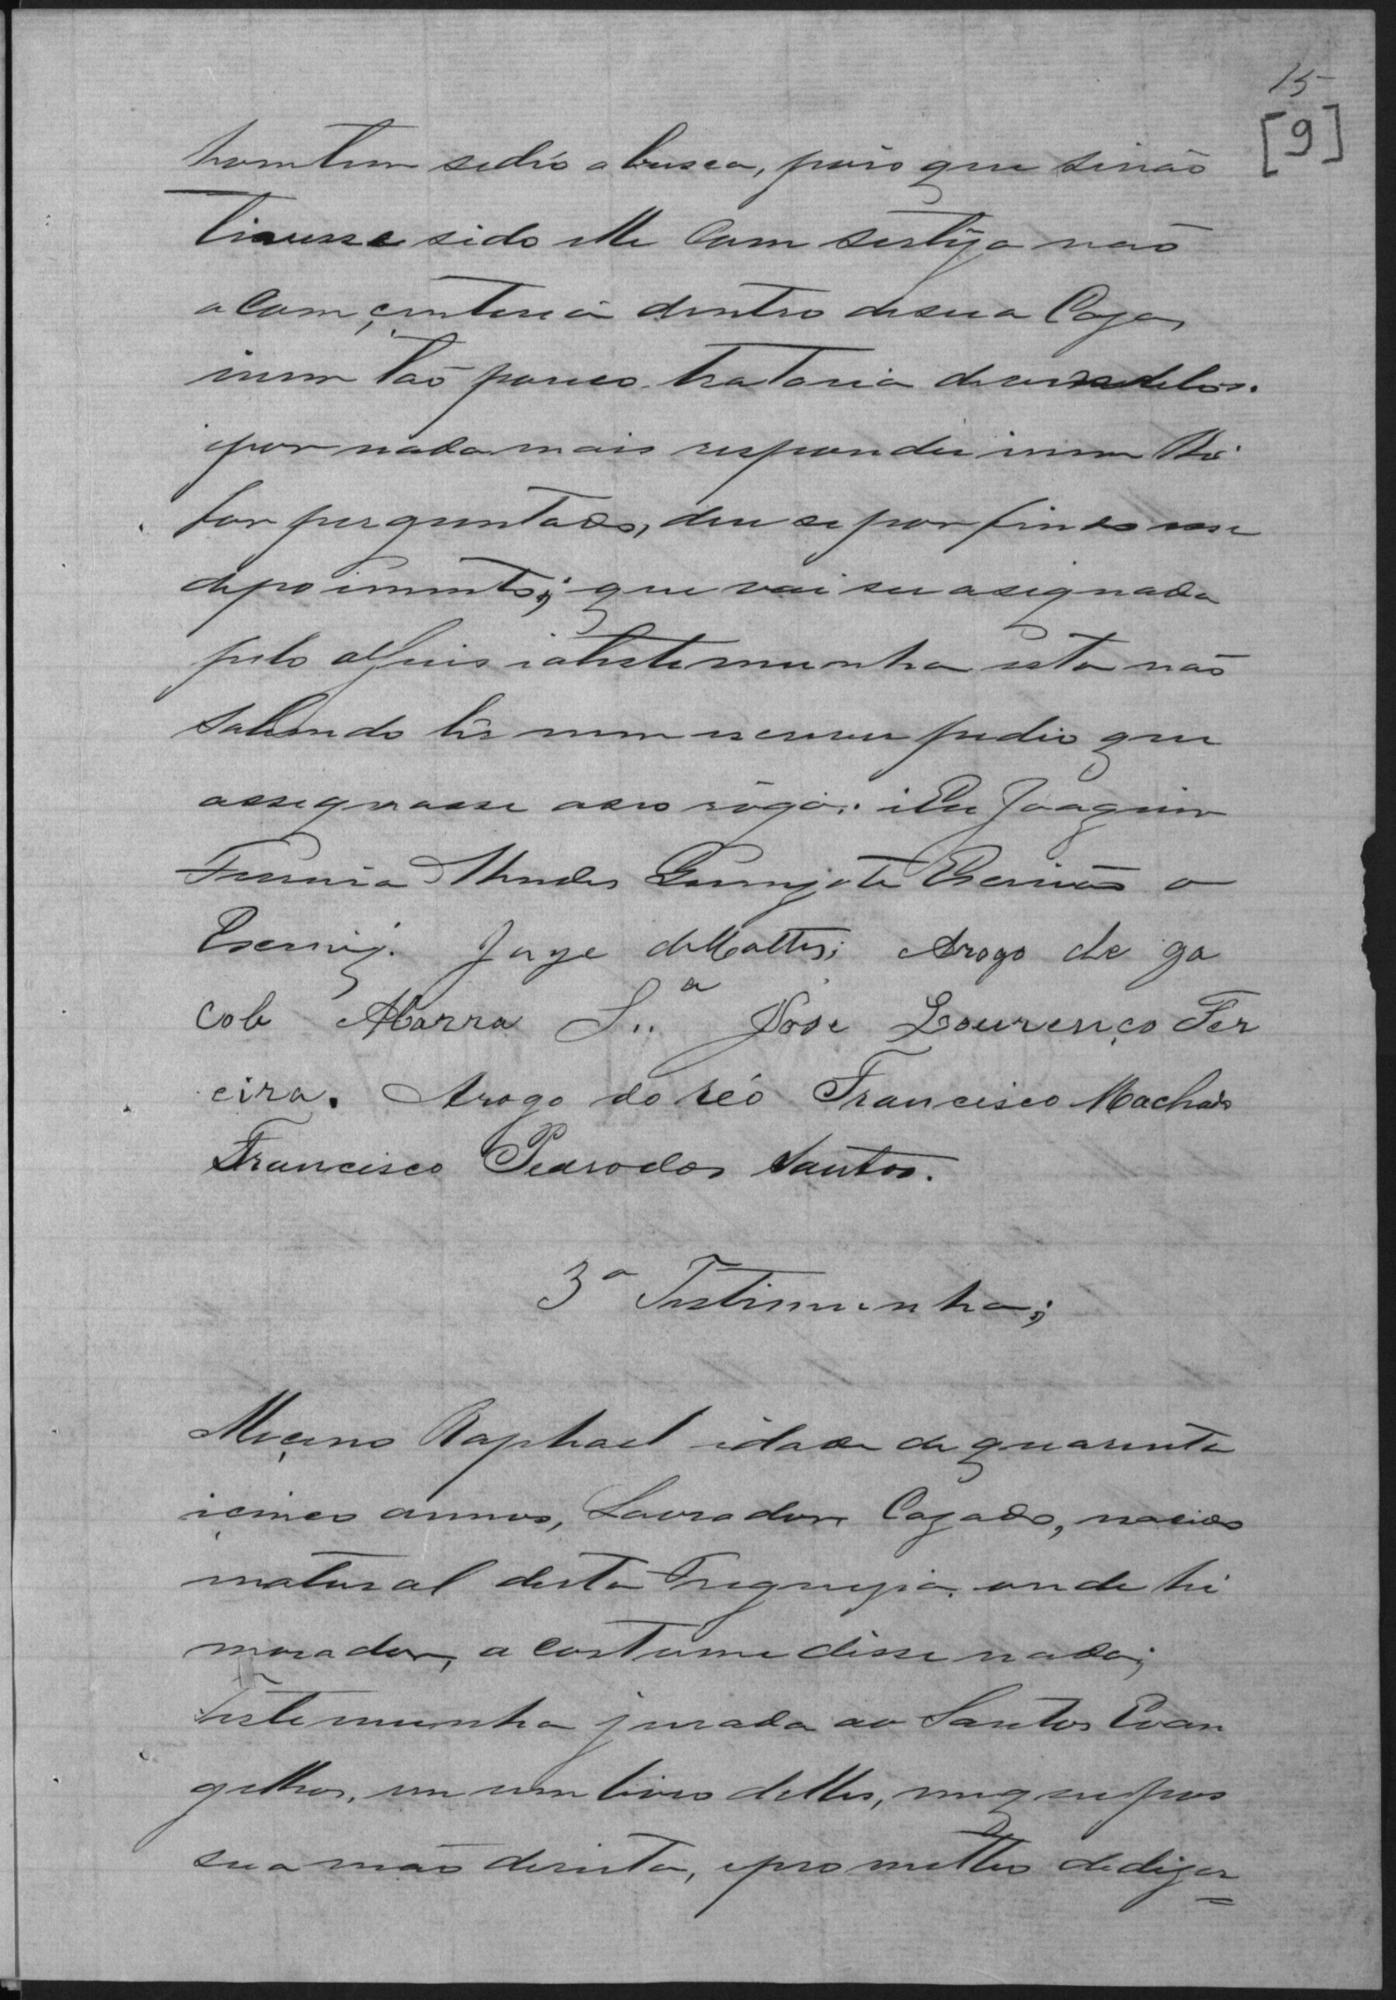 15
[9]
homtem sedio a busca, pois que sinão
tivesse sido elle Com sertêza não
a Com, çentiria dentro de sua Caza,
inem tão pouco trataria de vendelos.
ipor nada mais respondeu inem lhi
for perguntado, deu se por findo esse
depoimento; que vai ser asignada
pelo o Juis iatestemunha esta não
Sabendo lêr nem escrever pedio que
assegnasse aseo rôgo: iEu Joaquim
Ferreira Mendes Escrivão o
Escrevy. Jorge deMattos; Arogo de ga
cob Abarra S.ª José Lourenço Fer
eira. Arogo do réo Francisco Machado
Francisco Pedro dos Santos.
3ª Testimunha;
Raphael idade de quarenta
icinco annos, Lavrador Cazado,
natural desta Freguezia, onde hé
morador, a costume disse nada;
Testemunha jurada ao Santos Evan
gelhos, em um livro delles, emque pos
sua mão direita, eprometteo de dizer